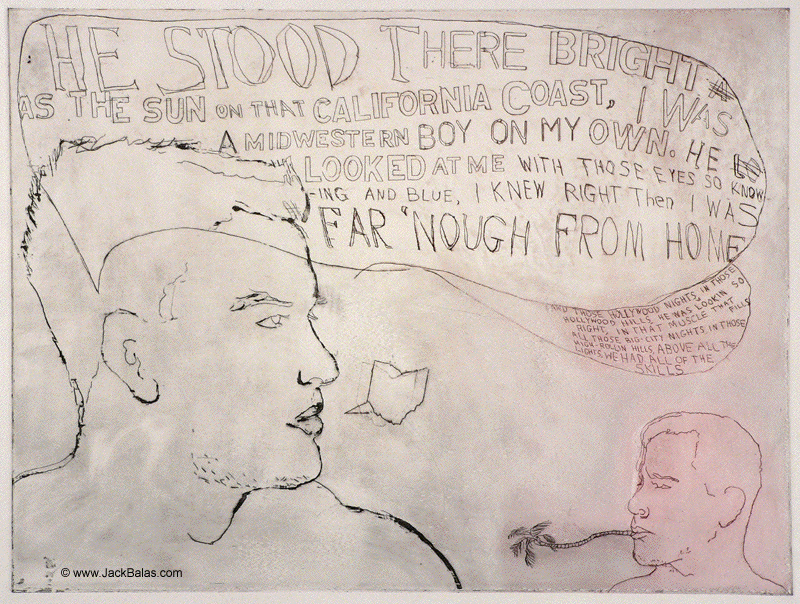 HE STOOD THERE BRIGHT
AS THE SUN ON THAT CALIFORNIA COAST, I WAS
A MIDWESTERN BOY ON MY OWN. HE
LOOKED AT ME WITH THOSE EYES SO KNOW
-ING AND BLUE, I KNEW RIGHT THEn I WAS
FAR 'NOUGH FROM HOME
AND THOSE HOLLYWOOD NIGHTS, IN THOSE
HOLLYWOOD HILLS, HE WAS LOOKIN SO
RIGHT, IN THAT MUSCLE THAT PILLS
ALL THOSE BIG-CITY NIGHTS, IN THOSE
HIGH-ROLLIN HILLS, ABOVE ALL THE
LIGHTS, WE HAD ALL OF THE
SKILLS
© www.JackBalas.com